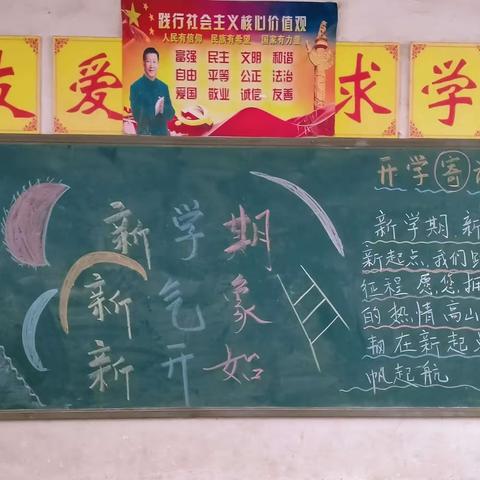 践行社会主义核心价值观
人民有信仰 民族有希望 国家有力量
富强 民主 文明 和谐
自由 平等 公正 法治
爱国 敬业 诚信 友善
友 爱 求 学
新学期
新气象
新开如
开学寄
新学期、新
新起点,我们
征程,愿您拥
的热情高山
韧在新起点
帆起航